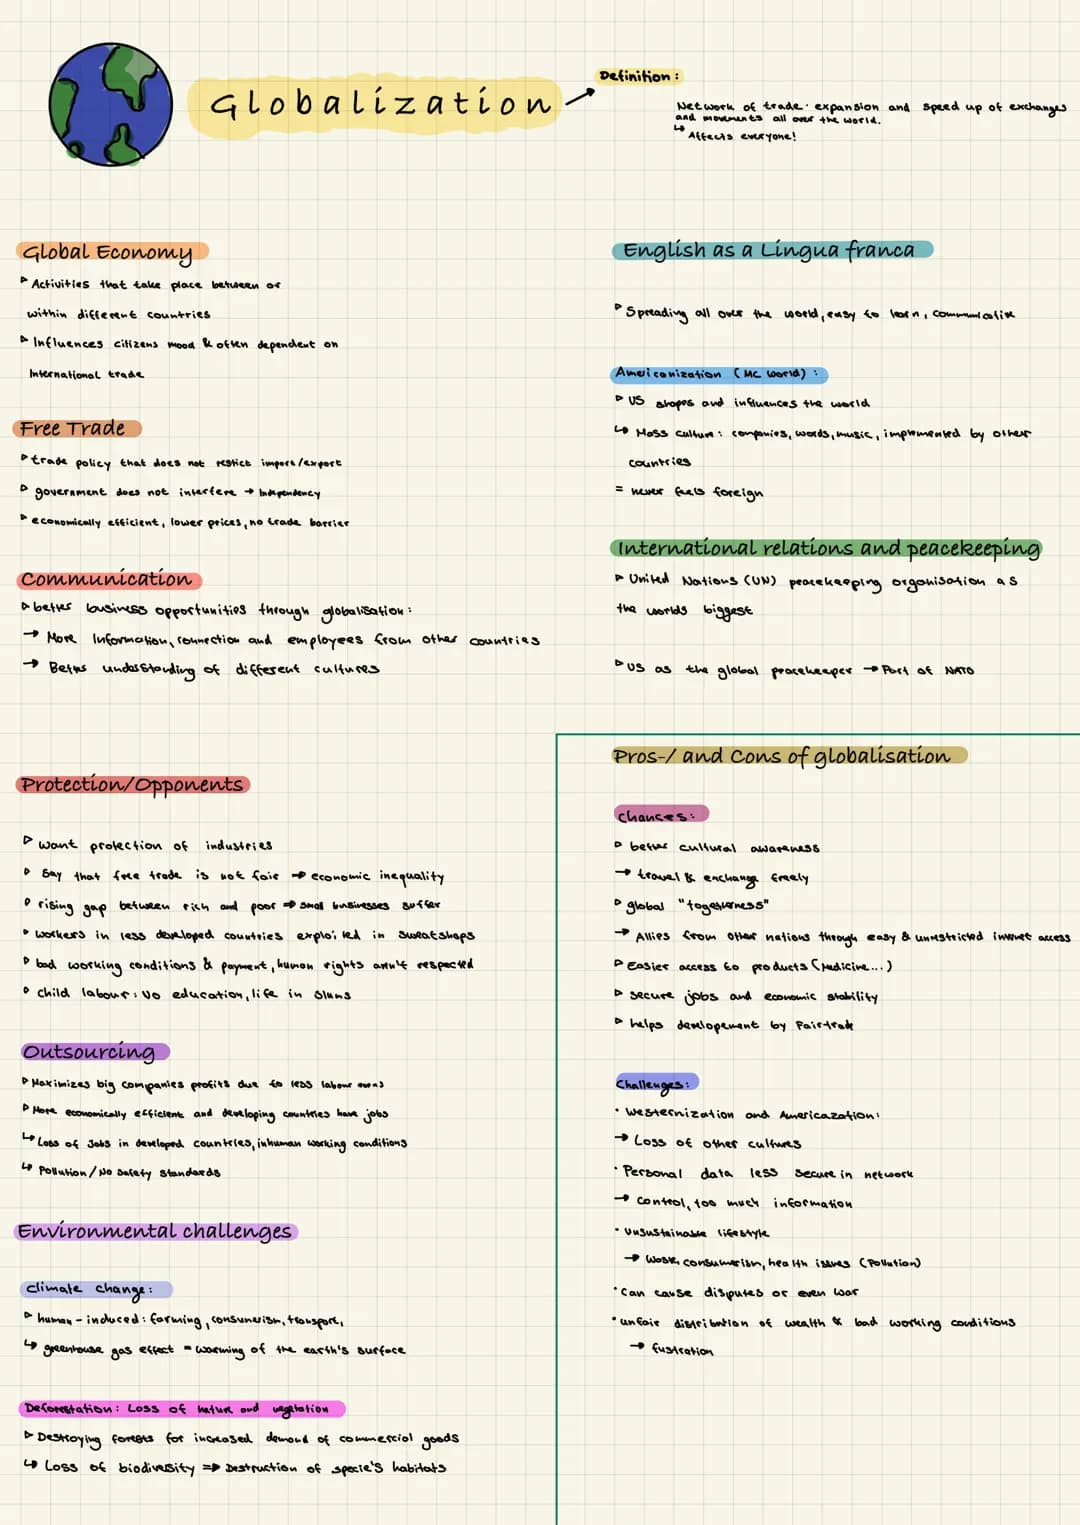 Globalization
Definition:
Network of trade. expansion and speed up of exchanges
and movements all over the world.
↳ Affects everyone!
Global Economy
▹ Activities that take place between or
within different countries
▹ Influences citizens mood & often dependent on
International trade
Free Trade
▹ trade policy that does not restict import/export
▹ government does not interfere → Independency
▹ economically efficient, lower prices, no trade barrier
Communication
▹ better business opportunities through globalisation:
→ More Information, connection and employees from other countries
→ Better understanding of different cultures
Protection/Opponents
▹ want protection of industries
▹ Say that free trade is not fair ⇒ economic inequality
▹ rising gap between rich and poor ⇒ small businesses suffer
▹ workers in less developed countries exploited in sweatshops
▹ bad working conditions & payment, human rights aren't respected
▹ child labour: No education, life in Slums
Outsourcing
▹ Maximizes big companies profits due to less labour
▹ More economically efficient and developing countries have jobs
↳ Loss of Jobs in developed countries, inhuman working conditions
↳ Pollution/No Safety Standards
Environmental challenges
climate change:
▹ human-induced: farming, consumerism, transport,
↳ greenhouse gas effect = warming of the earth's surface
Deforestation: Loss of nature and vegetation
▹ Destroying forests for increased demand of commercial goods
↳ Loss of biodiversity ⇒ Destruction of specie's habitats
English as a Lingua franca
▹ Spreading all over the world, easy to learn,
Americanization (MC World):
▹ US shapes and influences the world
↳ Mass culture: companies, words, music, implemented by other
countries
= never feels foreign
International relations and peacekeeping
▹ United Nations (UN) peacekeeping organisation as
the worlds biggest
▹ US as the global peacekeeper → Part of NATO
Pros-/ and Cons of globalisation
Chances:
▹ better cultural awareness
→ travel & exchange freely
▹ global "togetherness"
→ Allies from other nations through easy & unrestricted internet access
▹ Easier access to products (Medicine...)
▹ secure jobs and economic stability
▹ helps developement by Fairtrade
Challenges:
· Westernization and Americazation:
→ Loss of other cultures
· Personal data less secure in network
→ Control, too much information
· Unsustainable lifestyle
→ Waste, consumerism, health issues (Pollution)
· Can cause disputes or even war
· unfair distribution of wealth & bad working conditions
→ fustration